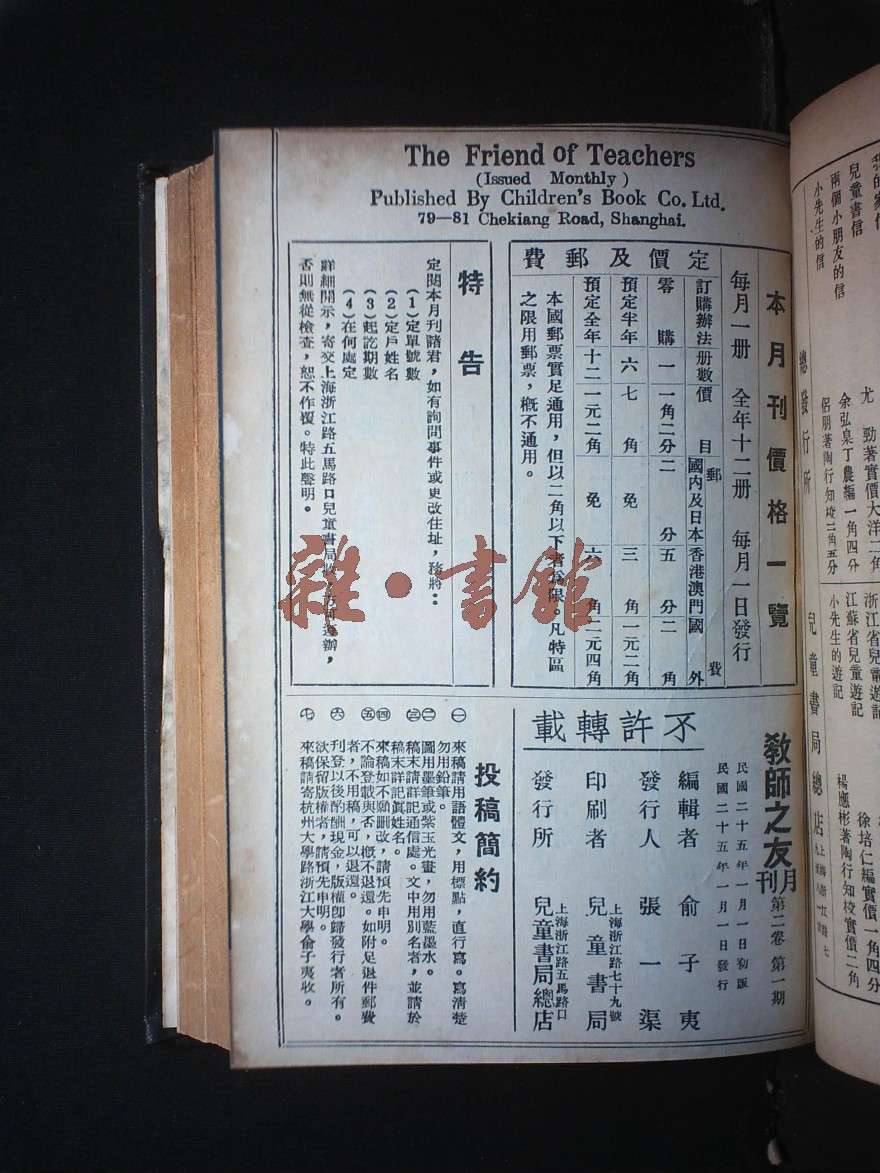 The Friend of Teachers
(Issued Monthly)
Published By Children's Book Co. Ltd.
79—81 Chekiang Road, Shanghai.
本月刊價格一覽
每月一册　全年十二册　每月一日發行
定價及郵費
訂購辦法 册數 價目 郵費 國內及日本 香港澳門 國外
零購 一 一角二分 二分 五分 二角
預定半年 六 七角 免 三角 一元二角
預定全年 十二 一元二角 免 六角 二元四角
本國郵票實足通用，但以二角以下者爲限，凡特區
之限用郵票，概不通用。
特告
定閱本月刊諸君，如有詢問事件或更改住址，務將：
(1)定單號數
(2)定戶姓名
(3)起訖期數
(4)在何處定
詳細開示，寄交上海浙江路五馬路口兒童書局收，
否則無從檢查，恕不作覆。特此聲明。
教師之友月刊 第二卷 第一期
民國二十五年一月一日初版
民國二十五年一月一日發行
不許轉載
編輯者　俞子夷
發行人　張一渠
印刷者　上海浙江路七十九號 兒童書局
發行所　上海浙江路五馬路口 兒童書局總店
投稿簡約
㊀來稿請用語體文，用標點，直行寫。寫清楚
勿用鉛筆。
㊁圖用墨筆或紫玉光畫，勿用藍墨水。
㊂稿末請註記通信處。文中用別名者，並請於
稿末詳記眞姓名。
㊃來稿如不願刪改，請預先申明。
㊄不論登載與否，概不退還。如附足退件郵費
者，不用稿，可以退還。
㊅刊登以後酌酬現金，版權卽歸發行者所有。
欲保留版權者，請預先申明。
㊆來稿請寄杭州大學路浙江大學俞子夷收。
雜·書館
兒童書信
兩個小朋友的信
小先生的信
尤勁著實價大洋二角
余弘㫤丁農編一角四分
侶朋著陶行知校二角五分
總發行所
兒童書局總店
浙江省兒童遊記
江蘇省兒童遊記
小先生的遊記
徐培仁編實價一角四分
楊應彬著陶行知校實價二角